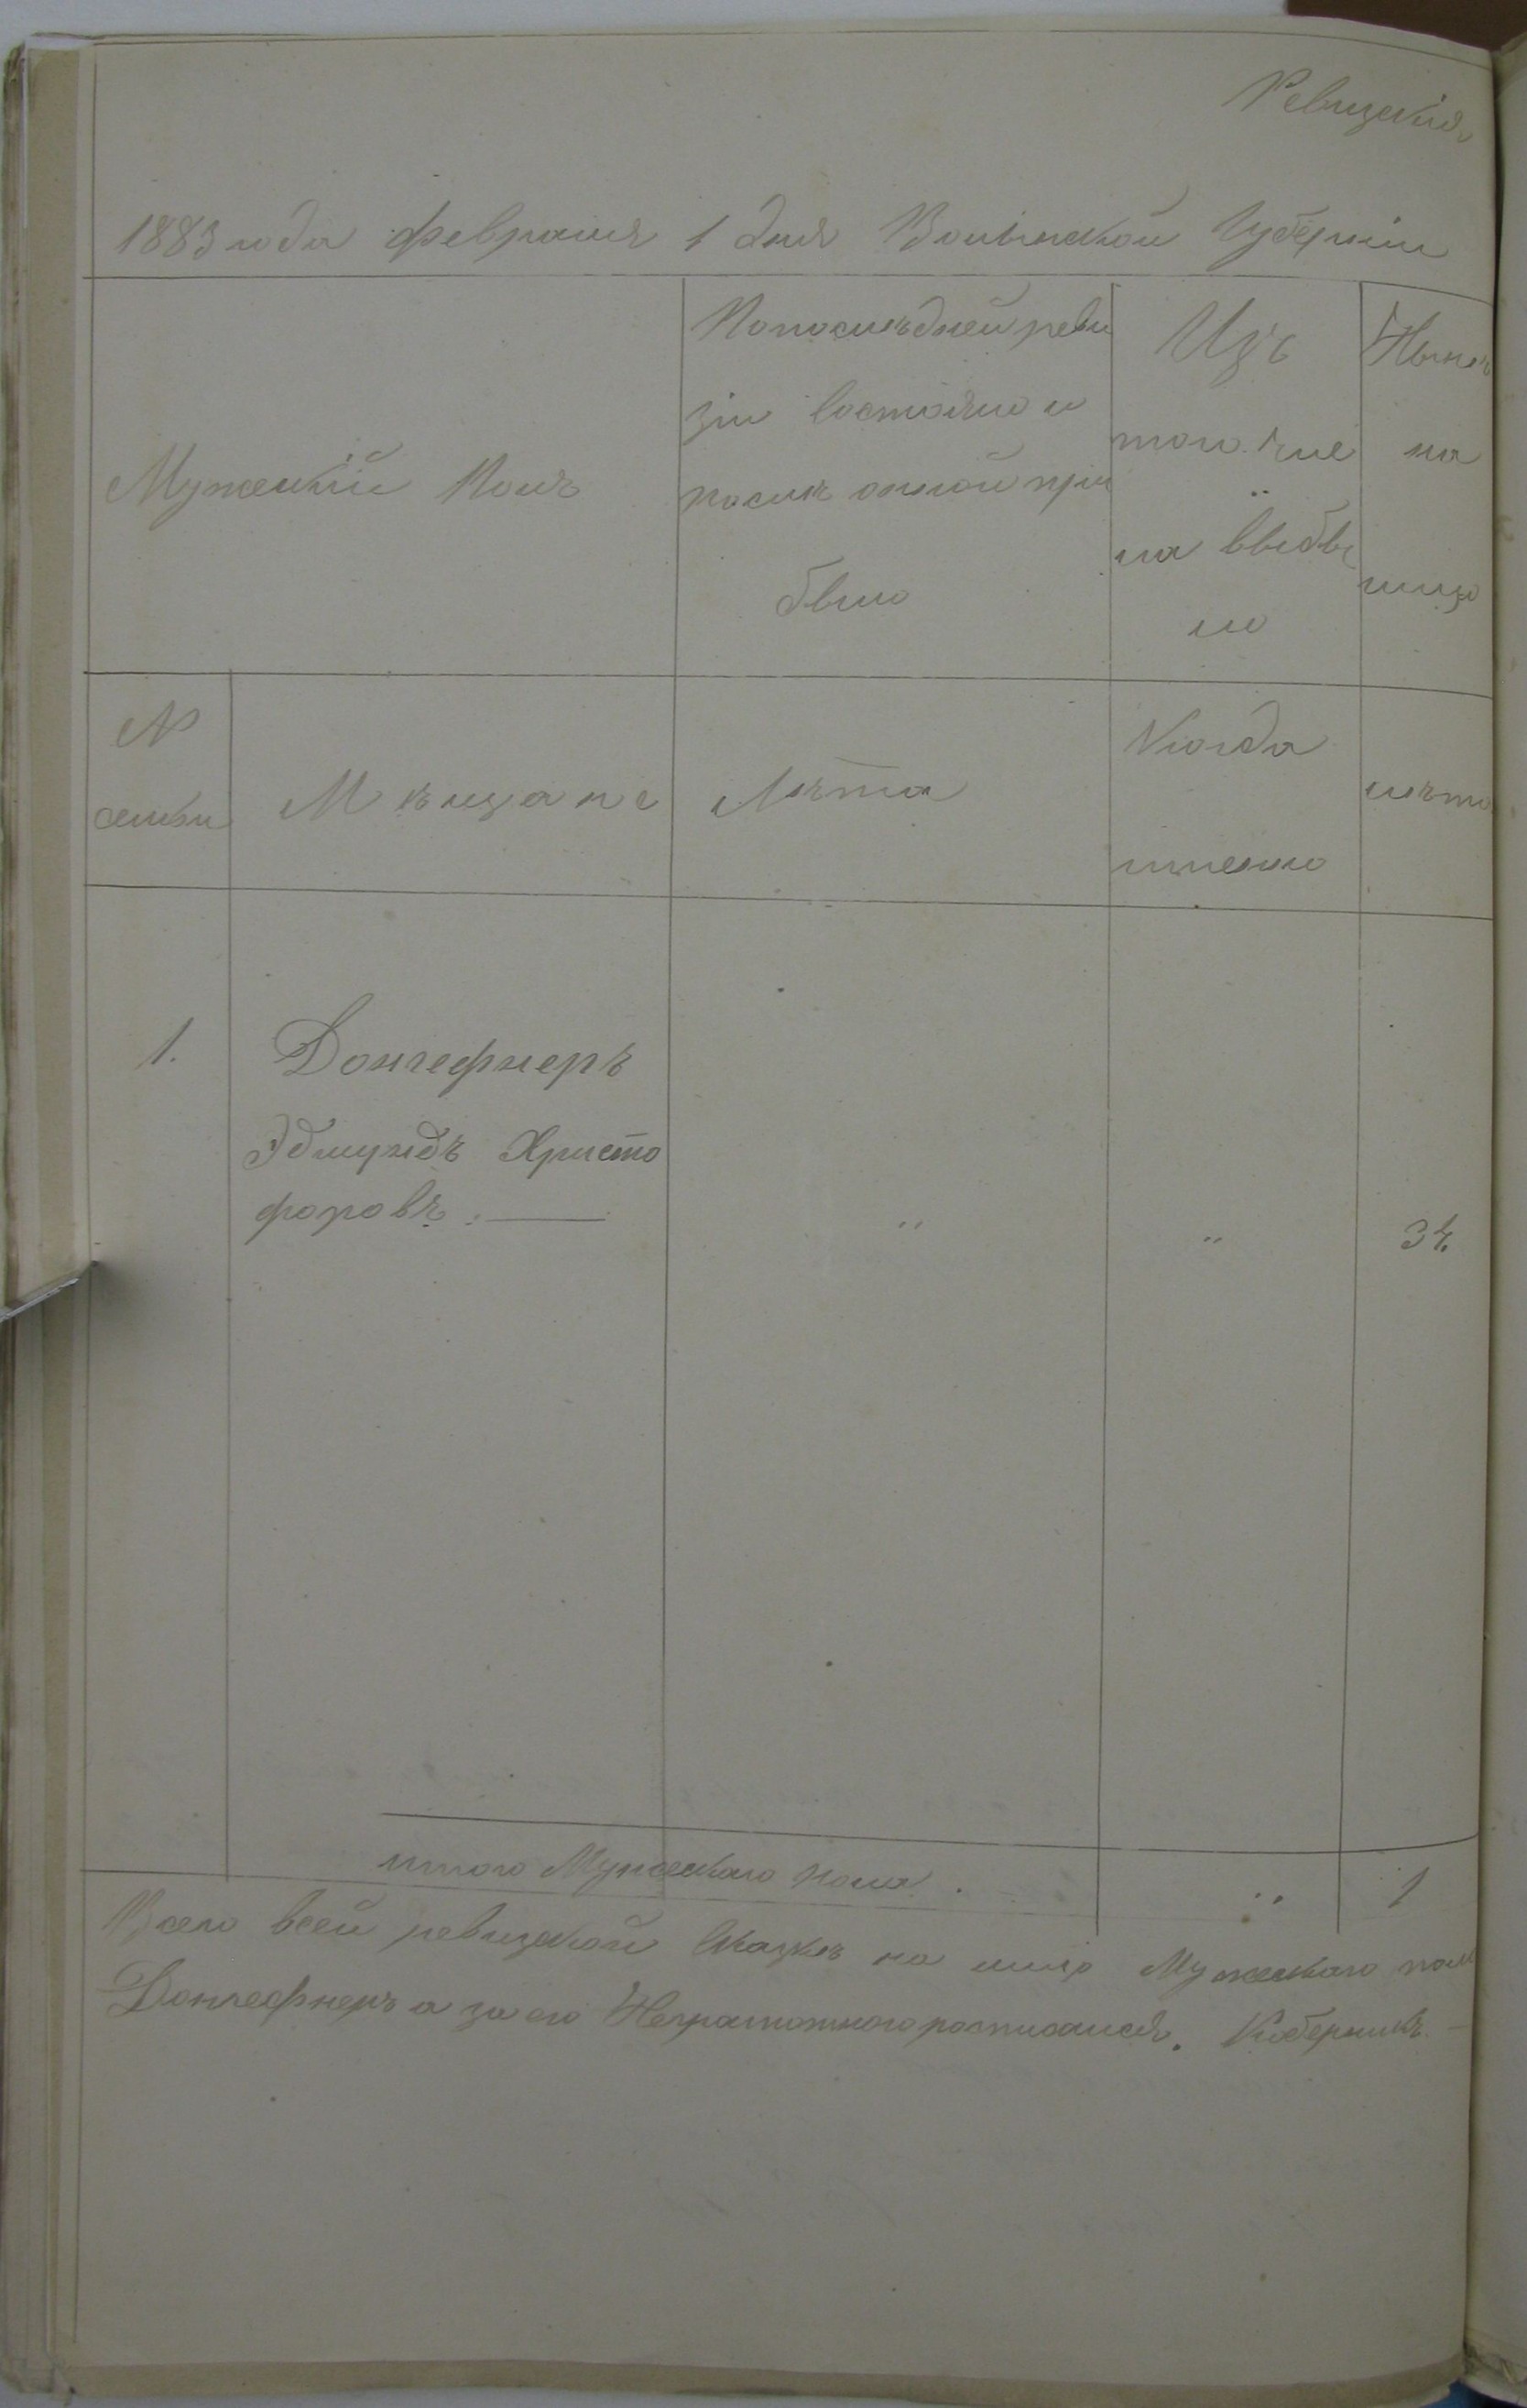 Ревизская
1883 года февраля 1 дня Волынской Губерніи
Мужескій Полъ
По послѣдней реви
зіи состояло и
послѣ оной при
было
Изъ
того чис
ла выбы
ло
Нынѣ
на
лицо
№
семьи
Мѣщане
Лѣта
Когда
именно
лѣта
1.
Донгефнеръ
Эдмундъ Христо
форовъ. —
"
"
34.
итого Мужескаго пола .
"
1
Всего всей ревизской сказкѣ на лицо Мужескаго пола
Донгефнеръ а за его Неграмотного росписался.